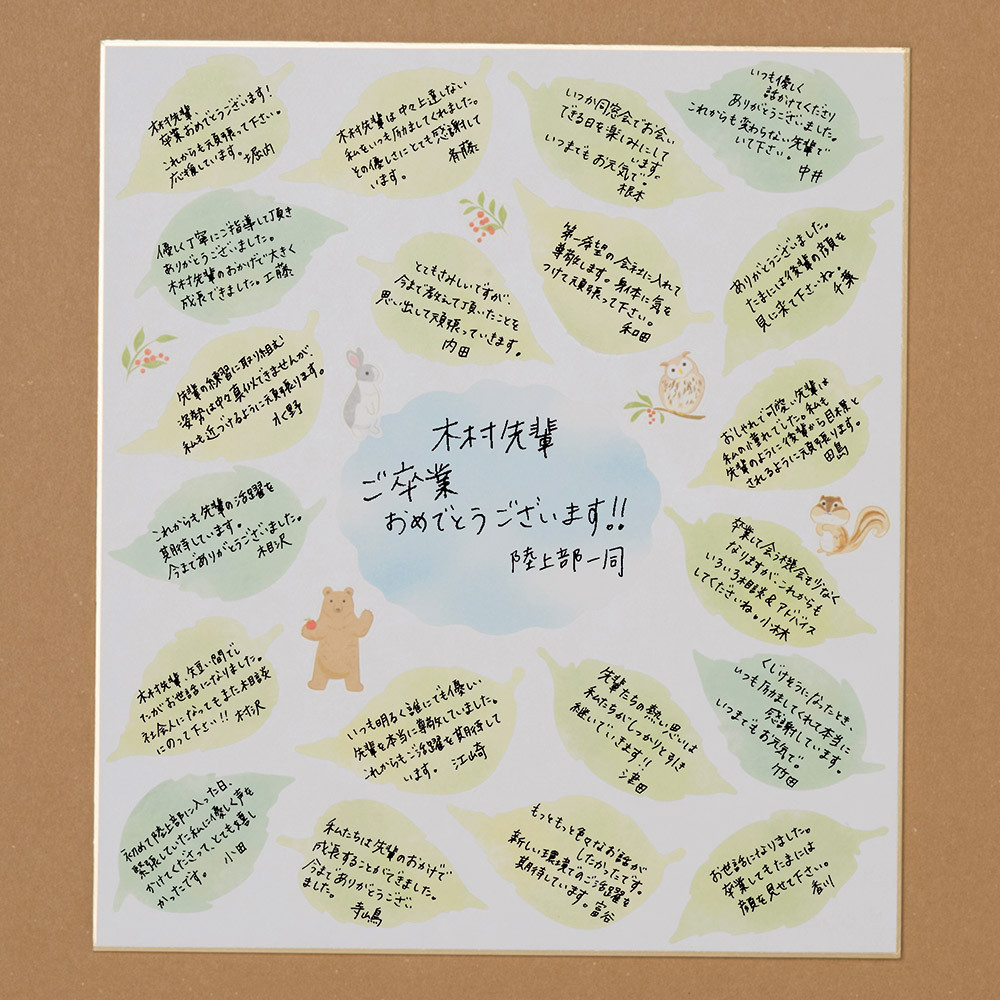 木村先輩
卒業おめでとうございます！
これからも頑張って下さい。
応援しています。 堀内
木村先輩は中々上達しない
私をいつも励ましてくれました。
その優しさにとても感謝して
います。 斉藤
いつか同窓会でお会い
できる日を楽しみにして
います。
いつまでもお元気で。
根本
いつも優しく
話かけてくださり
ありがとうございました。
これからも変わらない先輩で
いて下さい。 中井
優しく丁寧にご指導して頂き
ありがとうございました。
木村先輩のおかげで大きく
成長できました。工藤
とてもさみしいですが、
今まで教えて頂いたことを
思い出して頑張っていきます。
内田
第一希望の会社に入れて
尊敬します。身体に気を
つけて頑張って下さい。
和田
ありがとうございました。
たまには後輩の顔を
見に来て下さいね。
千葉
先輩の練習に取り組む
姿勢は中々真似できませんが、
私も近づけるように頑張ります。
水野
おしゃれで可愛い先輩は
私の憧れでした。私も
先輩のように後輩から目標と
されるように頑張ります。
田島
木村先輩
ご卒業
おめでとうございます!!
陸上部一同
これからも先輩の活躍を
期待しています。
今までありがとうございました。
相沢
卒業して会う機会も少なく
なりますが、これからも
いろいろ相談&アドバイス
してくださいね。小林
木村先輩、短い間でし
たがお世話になりました。
社会人になってもまた相談
にのって下さい!! 村沢
いつも明るく誰にでも優しい
先輩を本当に尊敬していました。
これからもご活躍を期待して
います。 江崎
先輩たちの熱い思いは
私たちがしっかりと引き
継いでいきます!!
津田
くじけそうになったとき
いつも励ましてくれて本当に
感謝しています。
いつまでもお元気で。
竹田
初めて陸上部に入った日、
緊張していた私に優しく声を
かけてくださって、とても嬉し
かったです。 小田
私たちは先輩のおかげで
成長することができました。
今までありがとうござい
ました。 寺島
もっともっと色々なお話が
したかったです。
新しい環境でのご活躍も
期待しています。富谷
お世話になりました。
卒業してもたまには
顔を見せて下さい。
香川